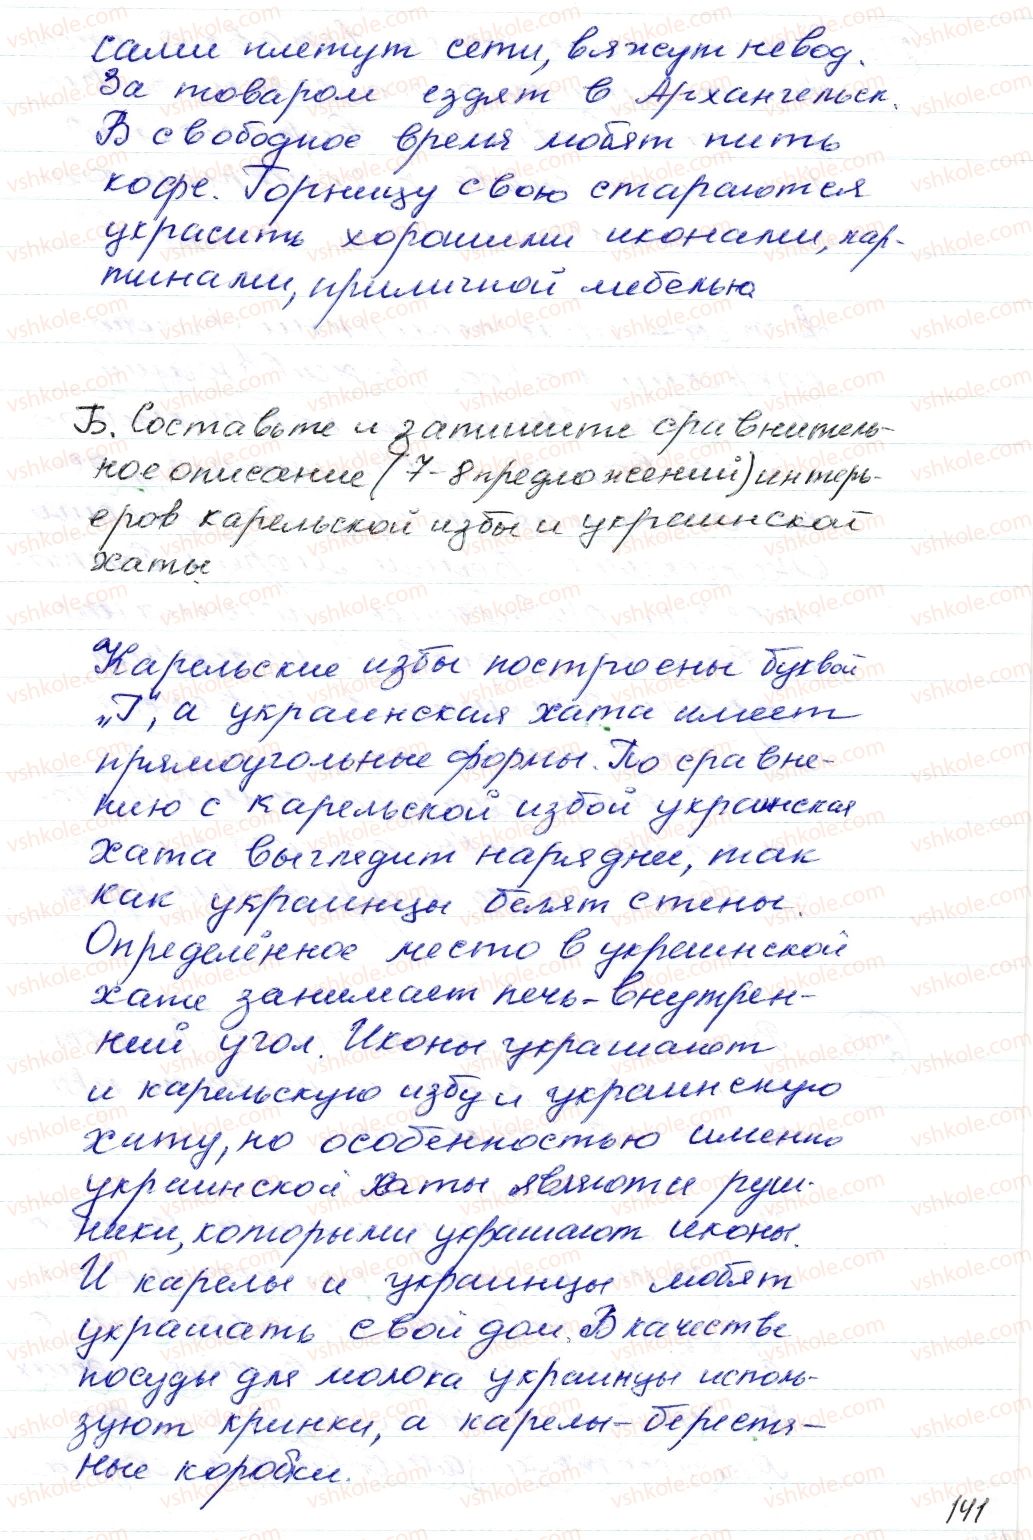 сами плетут сети, вяжут невод.
За товаром ездят в Архангельск.
В свободное время любят пить
кофе. Горницу свою стараются
украсить хорошими иконами, кар-
тинами, приличной мебелью
Б. Составьте и запишите сравнитель-
ное описание (7-8 предложений) интерь-
еров карельской избы и украинской
хаты.
Карельские избы построены буквой
„Г", а украинская хата имеет
прямоугольные формы. По сравне-
нию с карельской избой украинская
хата выглядит нарядней, так
как украинцы белят стены.
Определённое место в украинской
хате занимает печь-внутрен-
ний угол. Иконы украшают
и карельскую избу и украинскую
хату, но особенностью именно
украинской хаты являются руш-
ники, которыми украшают иконы.
И карелы и украинцы любят
украшать свой дом. В качестве
посуды для молока украинцы исполь-
зуют кринки, а карелы - берестя-
ные коробки.
141
vshkole.com